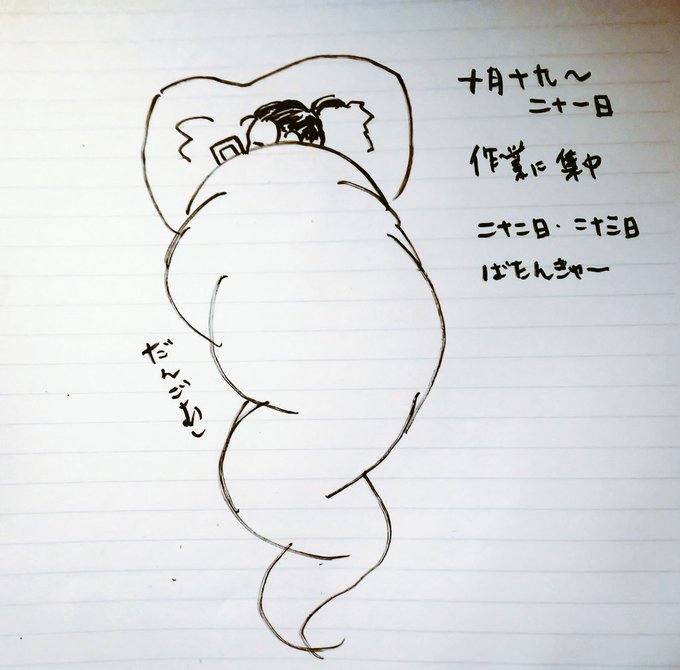 十月十九〜
二十一日
作業に集中
二十二日・二十三日
ばたんきゅー
だんごむし